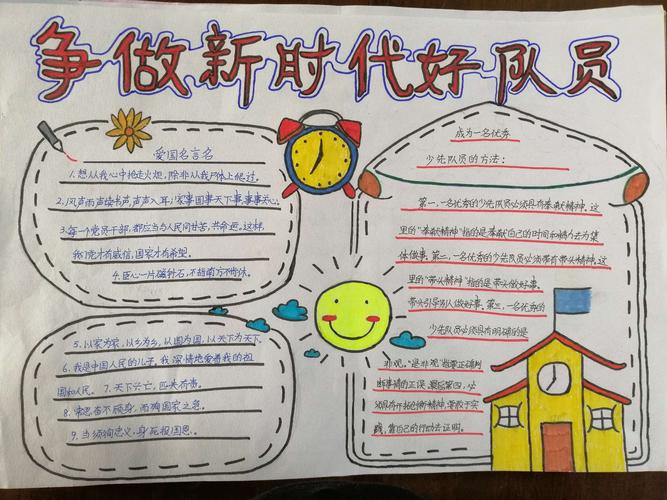 争做新时代好队员
爱国名言名
1. 想从我心中抢走火炬,除非从我尸体上爬过。
2. 风声雨声读书声,声声入耳;家事国事天下事,事事关心。
3. 每个党员干部,都应当与人民同甘苦,共命运。这样,
我们党才有威信,国家才有希望。
4. 臣心一片磁针石,不指南方不肯休。
5. 以家为家,以乡为乡,以国为国,以天下为天下。
6. 我是中国人民的儿子。我深情地爱着我的祖
国和人民。 7. 天下兴亡,匹夫有责。
8. 常思奋不顾身,而殉国家之急。
9. 当须徇忠义,身死报国恩。
成为一名优秀
少先队员的方法:
第一,一名优秀的少先队员必须具有奉献精神。这
里的“奉献精神”指的是奉献自己的时间和精力去为集
体做事。第二,一名优秀的少先队员必须带有带头精神。这
里的“带头精神”指的是带头做好事。
带头引导别人做好事。第三,一名优秀的
少先队员必须具有明确的是
非观。“是非观”指要正确判
断事情的正误。最后第四,必
须具有开拓创新精神,要敢于实
践,靠自己的行动去证明。